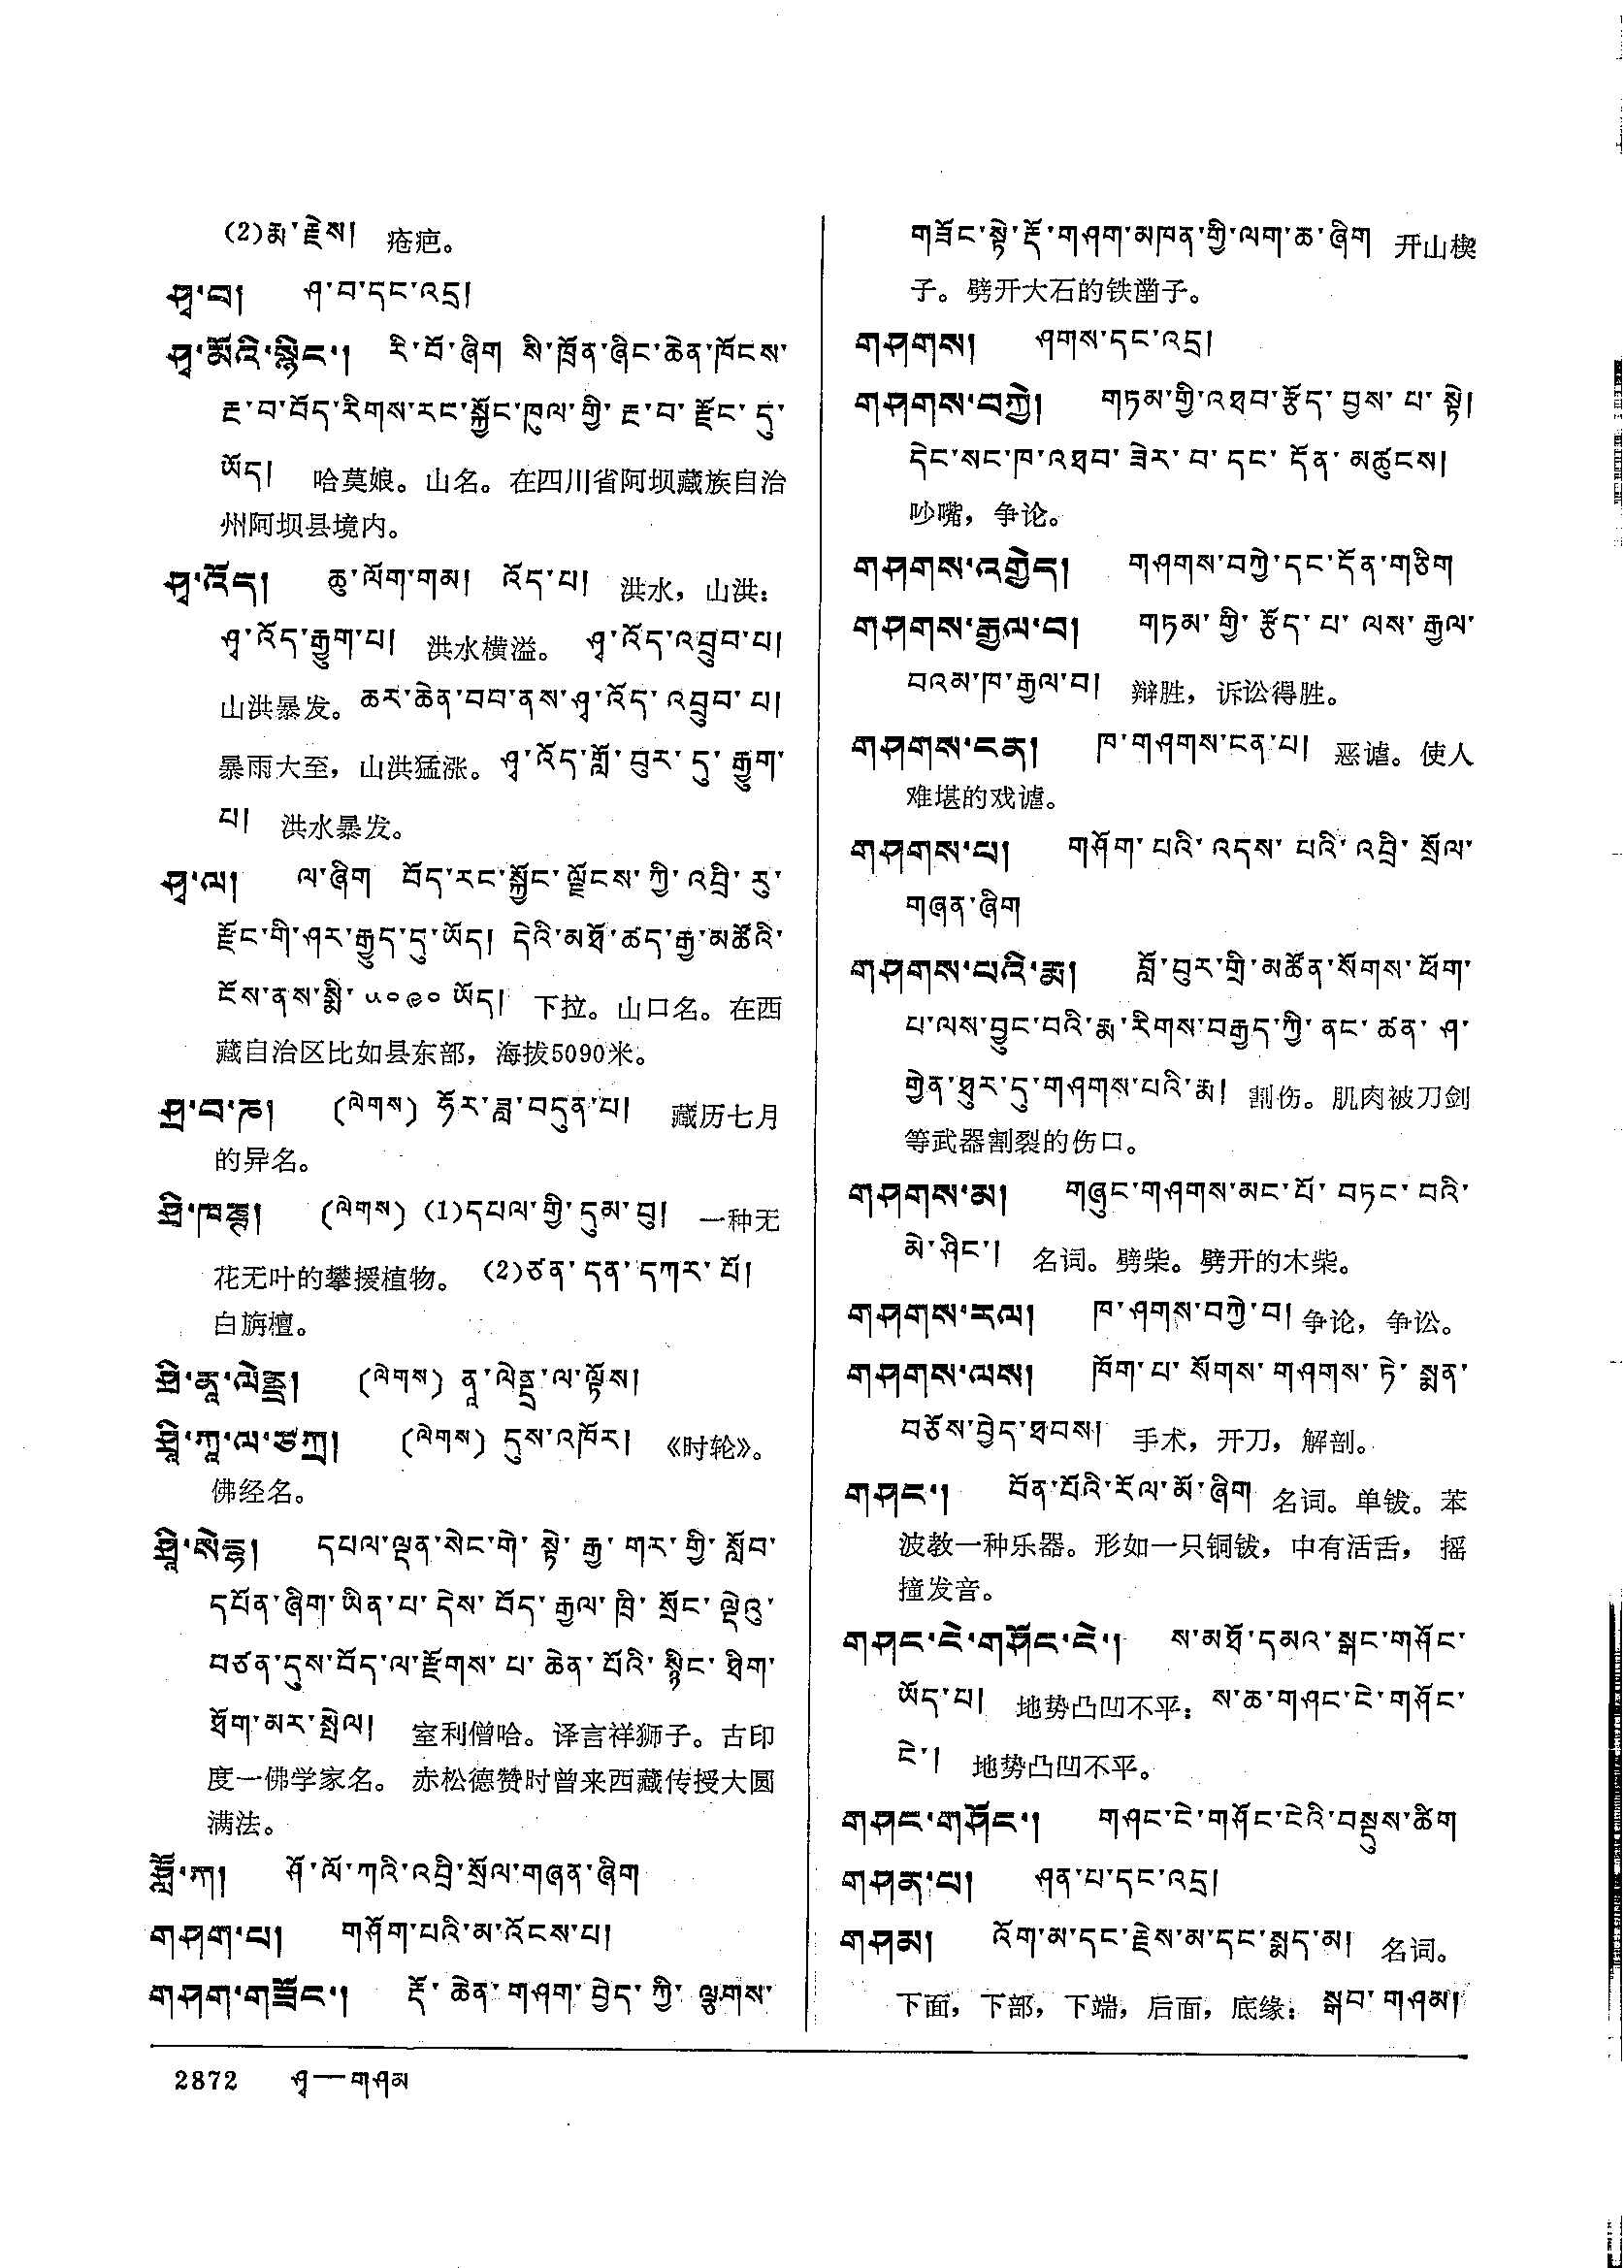 (2)རྨ་རྗེས། 疮疤。
ཤྭ་བ། ཤ་བ་དང་འདྲ།
ཤྭ་མོའི་སྙིང་། རི་བོ་ཞིག སི་ཁྲོན་ཞིང་ཆེན་ཁོངས་
རྔ་བ་བོད་རིགས་རང་སྐྱོང་ཁུལ་གྱི་ རྔ་བ་ རྫོང་ དུ་
ཡོད། 哈莫娘。山名。在四川省阿坝藏族自治
州阿坝县境内。
ཤྭ་འོད། ཆུ་ལོག་གམ། འོད་པ། 洪水，山洪：
ཤྭ་འོད་རྒྱུག་པ། 洪水横溢。 ཤྭ་འོད་འབྲུབ་པ།
山洪暴发。ཆར་ཆེན་བབ་ནས་ཤྭ་འོད་ འབྲུབ་ པ།
暴雨大至，山洪猛涨。ཤྭ་འོད་གློ་བུར་ དུ་ རྒྱུག་
པ། 洪水暴发。
ཤྭ་ལ། ལ་ཞིག བོད་རང་སྐྱོང་ལྗོངས་ཀྱི་འབྲི་ རུ་
རྫོང་གི་ཤར་རྒྱུད་དུ་ཡོད། དེའི་མཐོ་ཚད་རྒྱ་མཚོའི་
ངོས་ནས་སྨི་ ༥༠༩༠ ཡོད། 下拉。山口名。在西
藏自治区比如县东部，海拔5090米。
ཤྲ་བ་ཎ། (ལེགས) ཧོར་ཟླ་བདུན་པ། 藏历七月
的异名。
ཤྲི་ཁཎྜ། (ལེགས) (1)དཔལ་གྱི་དུམ་བུ། 一种无
花无叶的攀援植物。 (2)ཙན་དན་དཀར་པོ།
白旃檀。
ཤྲི་ནཱ་ལེནྡྲ། (ལེགས) ནཱ་ལེནྡྲ་ལ་ལྟོས།
ཤྲཱི་ཀཱ་ལ་ཙཀྲ། (ལེགས) དུས་འཁོར། 《时轮》。
佛经名。
ཤྲཱི་སེངྷ། དཔལ་ལྡན་སེང་གེ་ སྟེ་ རྒྱ་ གར་ གྱི་ སློབ་
དཔོན་ཞིག་ཡིན་པ་ དེས་ བོད་ རྒྱལ་ ཁྲི་ སྲོང་ ལྡེའུ་
བཙན་དུས་བོད་ལ་རྫོགས་ པ་ ཆེན་ པོའི་ སྙིང་ ཐིག་
ཐོག་མར་སྤེལ། 室利僧哈。译言祥狮子。古印
度一佛学家名。 赤松德赞时曾来西藏传授大圆
满法。
ཤློ་ཀ། ཤོ་ལོ་ཀའི་འབྲི་སྲོལ་གཞན་ཞིག
གཤག་པ། གཤོག་པའི་མ་འོངས་པ།
གཤག་གཟོང་། རྡོ་ ཆེན་ གཤག་ བྱེད་ ཀྱི་ ལྕགས་
གཟོང་སྟེ་རྡོ་གཤག་མཁན་གྱི་ལག་ཆ་ཞིག 开山楔
子。劈开大石的铁凿子。
གཤགས། ཤགས་དང་འདྲ།
གཤགས་བཀྱེ། གཏམ་གྱི་འཐབ་རྩོད་ བྱས་ པ་ སྟེ།
དེང་སང་ཁ་འཐབ་ ཟེར་ བ་ དང་ དོན་ མཚུངས།
吵嘴，争论。
གཤགས་འགྱེད། གཤགས་བཀྱེ་དང་དོན་གཅིག
གཤགས་རྒྱལ་བ། གཏམ་ གྱི་ རྩོད་ པ་ ལས་ རྒྱལ་
བའམ་ཁ་རྒྱལ་བ། 辩胜，诉讼得胜。
གཤགས་ངན། ཁ་གཤགས་ངན་པ། 恶谑。使人
难堪的戏谑。
གཤགས་པ། གཤོག་ པའི་ འདས་ པའི་ འབྲི་ སྲོལ་
གཞན་ཞིག
གཤགས་པའི་རྨ། གློ་བུར་གྲི་མཚོན་སོགས་ཕོག་
པ་ལས་བྱུང་བའི་རྨ་རིགས་བརྒྱད་ཀྱི་ ནང་ ཚན་ ཤ་
གྱེན་ཐུར་དུ་གཤགས་པའི་རྨ། 割伤。肌肉被刀剑
等武器割裂的伤口。
གཤགས་མ། གཞུང་གཤགས་མང་པོ་ བཏང་ བའི་
མེ་ཤིང་། 名词。劈柴。劈开的木柴。
གཤགས་རལ། ཁ་ཤགས་བཀྱེ་བ། 争论，争讼。
གཤགས་ལས། ཁོག་པ་ སོགས་ གཤགས་ ཏེ་ སྨན་
བཅོས་བྱེད་ཐབས། 手术，开刀，解剖。
གཤང་། བོན་པོའི་རོལ་མོ་ཞིག 名词。单钹。苯
波教一种乐器。形如一只铜钹，中有活舌， 摇
撞发音。
གཤང་ངེ་གཤོང་ངེ་། ས་མཐོ་དམའ་སྒང་གཤོང་
ཡོད་པ། 地势凸凹不平；ས་ཆ་གཤང་ངེ་གཤོང་
ངེ་། 地势凸凹不平。
གཤང་གཤོང་། གཤང་ངེ་གཤོང་ངེའི་བསྡུས་ཚིག
གཤན་པ། ཤན་པ་དང་འདྲ།
གཤམ། འོག་མ་དང་རྗེས་མ་དང་སྨད་མ། 名词。
下面，下部，下端，后面，底缘：སྒབ་ གཤམ།
2872 ཤྭ—གཤམ